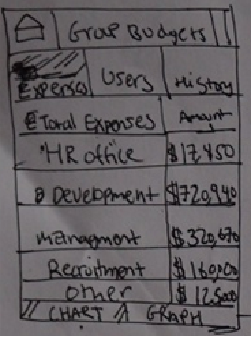 Group Budgets
Expenses Users History
Total Expenses Amount
HR office $17,450
Development $720,940
managment $320,670
Recruitment $160,000
other $12,500
CHART GRAPH